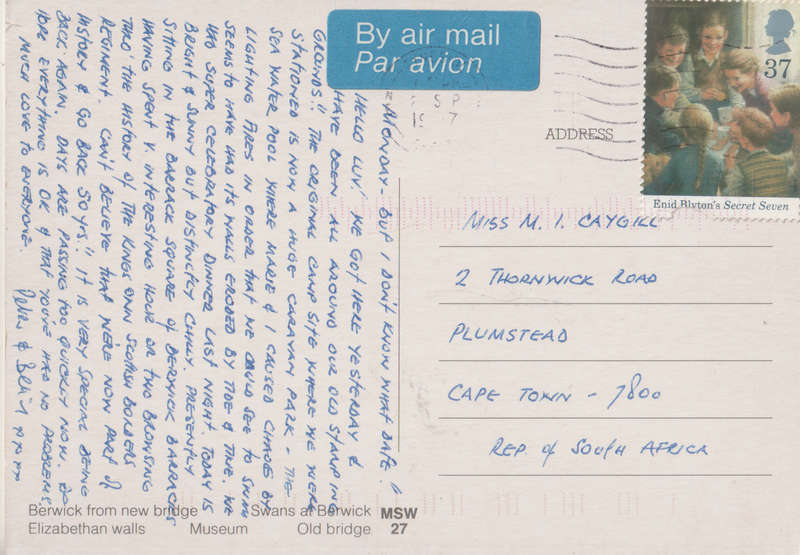 By air mail
Par avion
37
SP
19 7
ADDRESS
Enid Blyton's Secret Seven
MONDAY - BUT I DON'T KNOW WHAT DATE!
HELLO LUV! WE GOT HERE YESTERDAY &
HAVE BEEN ALL AROUND OUR OLD STAMPING
GROUNDS!! THE ORIGINAL CAMP SITE WHERE WE WERE
STATIONED IS NOW A HUGE CARAVAN PARK - THE
SEA WATER POOL WHERE MARIE & I CAUSED CHAOS BY
LIGHTING FIRES IN ORDER THAT WE COULD SEE TO SWIM
SEEMS TO HAVE HAD ITS WALLS ERODED BY TIDE & TIME. WE
HAD SUPER CELEBRATORY DINNER LAST NIGHT. TODAY IS
BRIGHT & SUNNY BUT DISTINCTLY CHILLY. PRESENTLY
SITTING IN THE BARRACK SQUARE OF BERWICK BARRACKS
HAVING SPENT V. INTERESTING HOUR OR TWO BROWSING
THRO' THE HISTORY OF THE KINGS OWN SCOTTISH BORDERS
REGIMENT. CAN'T BELIEVE THAT WE'RE NOW PART OF
HISTORY & GO BACK 50 YRS.!! IT IS VERY SPECIAL BEING
BACK AGAIN. DAYS ARE PASSING TOO QUICKLY NOW. DO
HOPE EVERYTHING IS OK & THAT YOU'VE HAD NO PROBLEMS.
MUCH LOVE TO EVERYONE.
MISS M. I. CAYGILL
2 THORNWICK ROAD
PLUMSTEAD
CAPE TOWN - 7800
REP. OF SOUTH AFRICA
Berwick from new bridge Swans at Berwick
Elizabethan walls Museum Old bridge
MSW
27